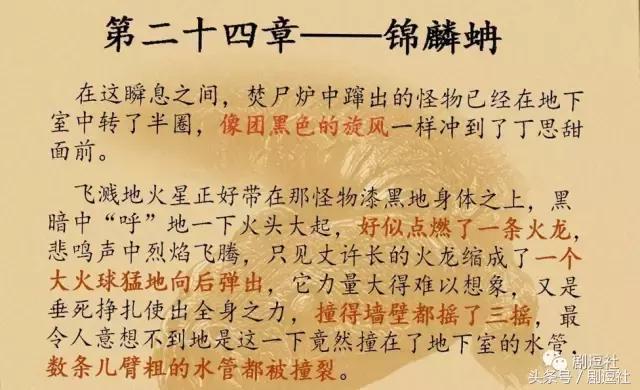 第二十四章——锦麟蚺
在这瞬息之间，焚尸炉中蹿出的怪物已经在地下
室中转了半圈，像团黑色的旋风一样冲到了丁思甜
面前。
飞溅地火星正好带在那怪物漆黑地身体之上，黑
暗中“呼”地一下火头大起，好似点燃了一条火龙，
悲鸣声中烈焰飞腾，只见丈许长的火龙缩成了一个
大火球猛地向后弹出，它力量大得难以想象，又是
垂死挣扎使出全身之力，撞得墙壁都摇了三摇，最
令人意想不到地是这一下竟然撞在了地下室的水管，
数条儿臂粗的水管都被撞裂。
剧逗社
头条号/剧逗社